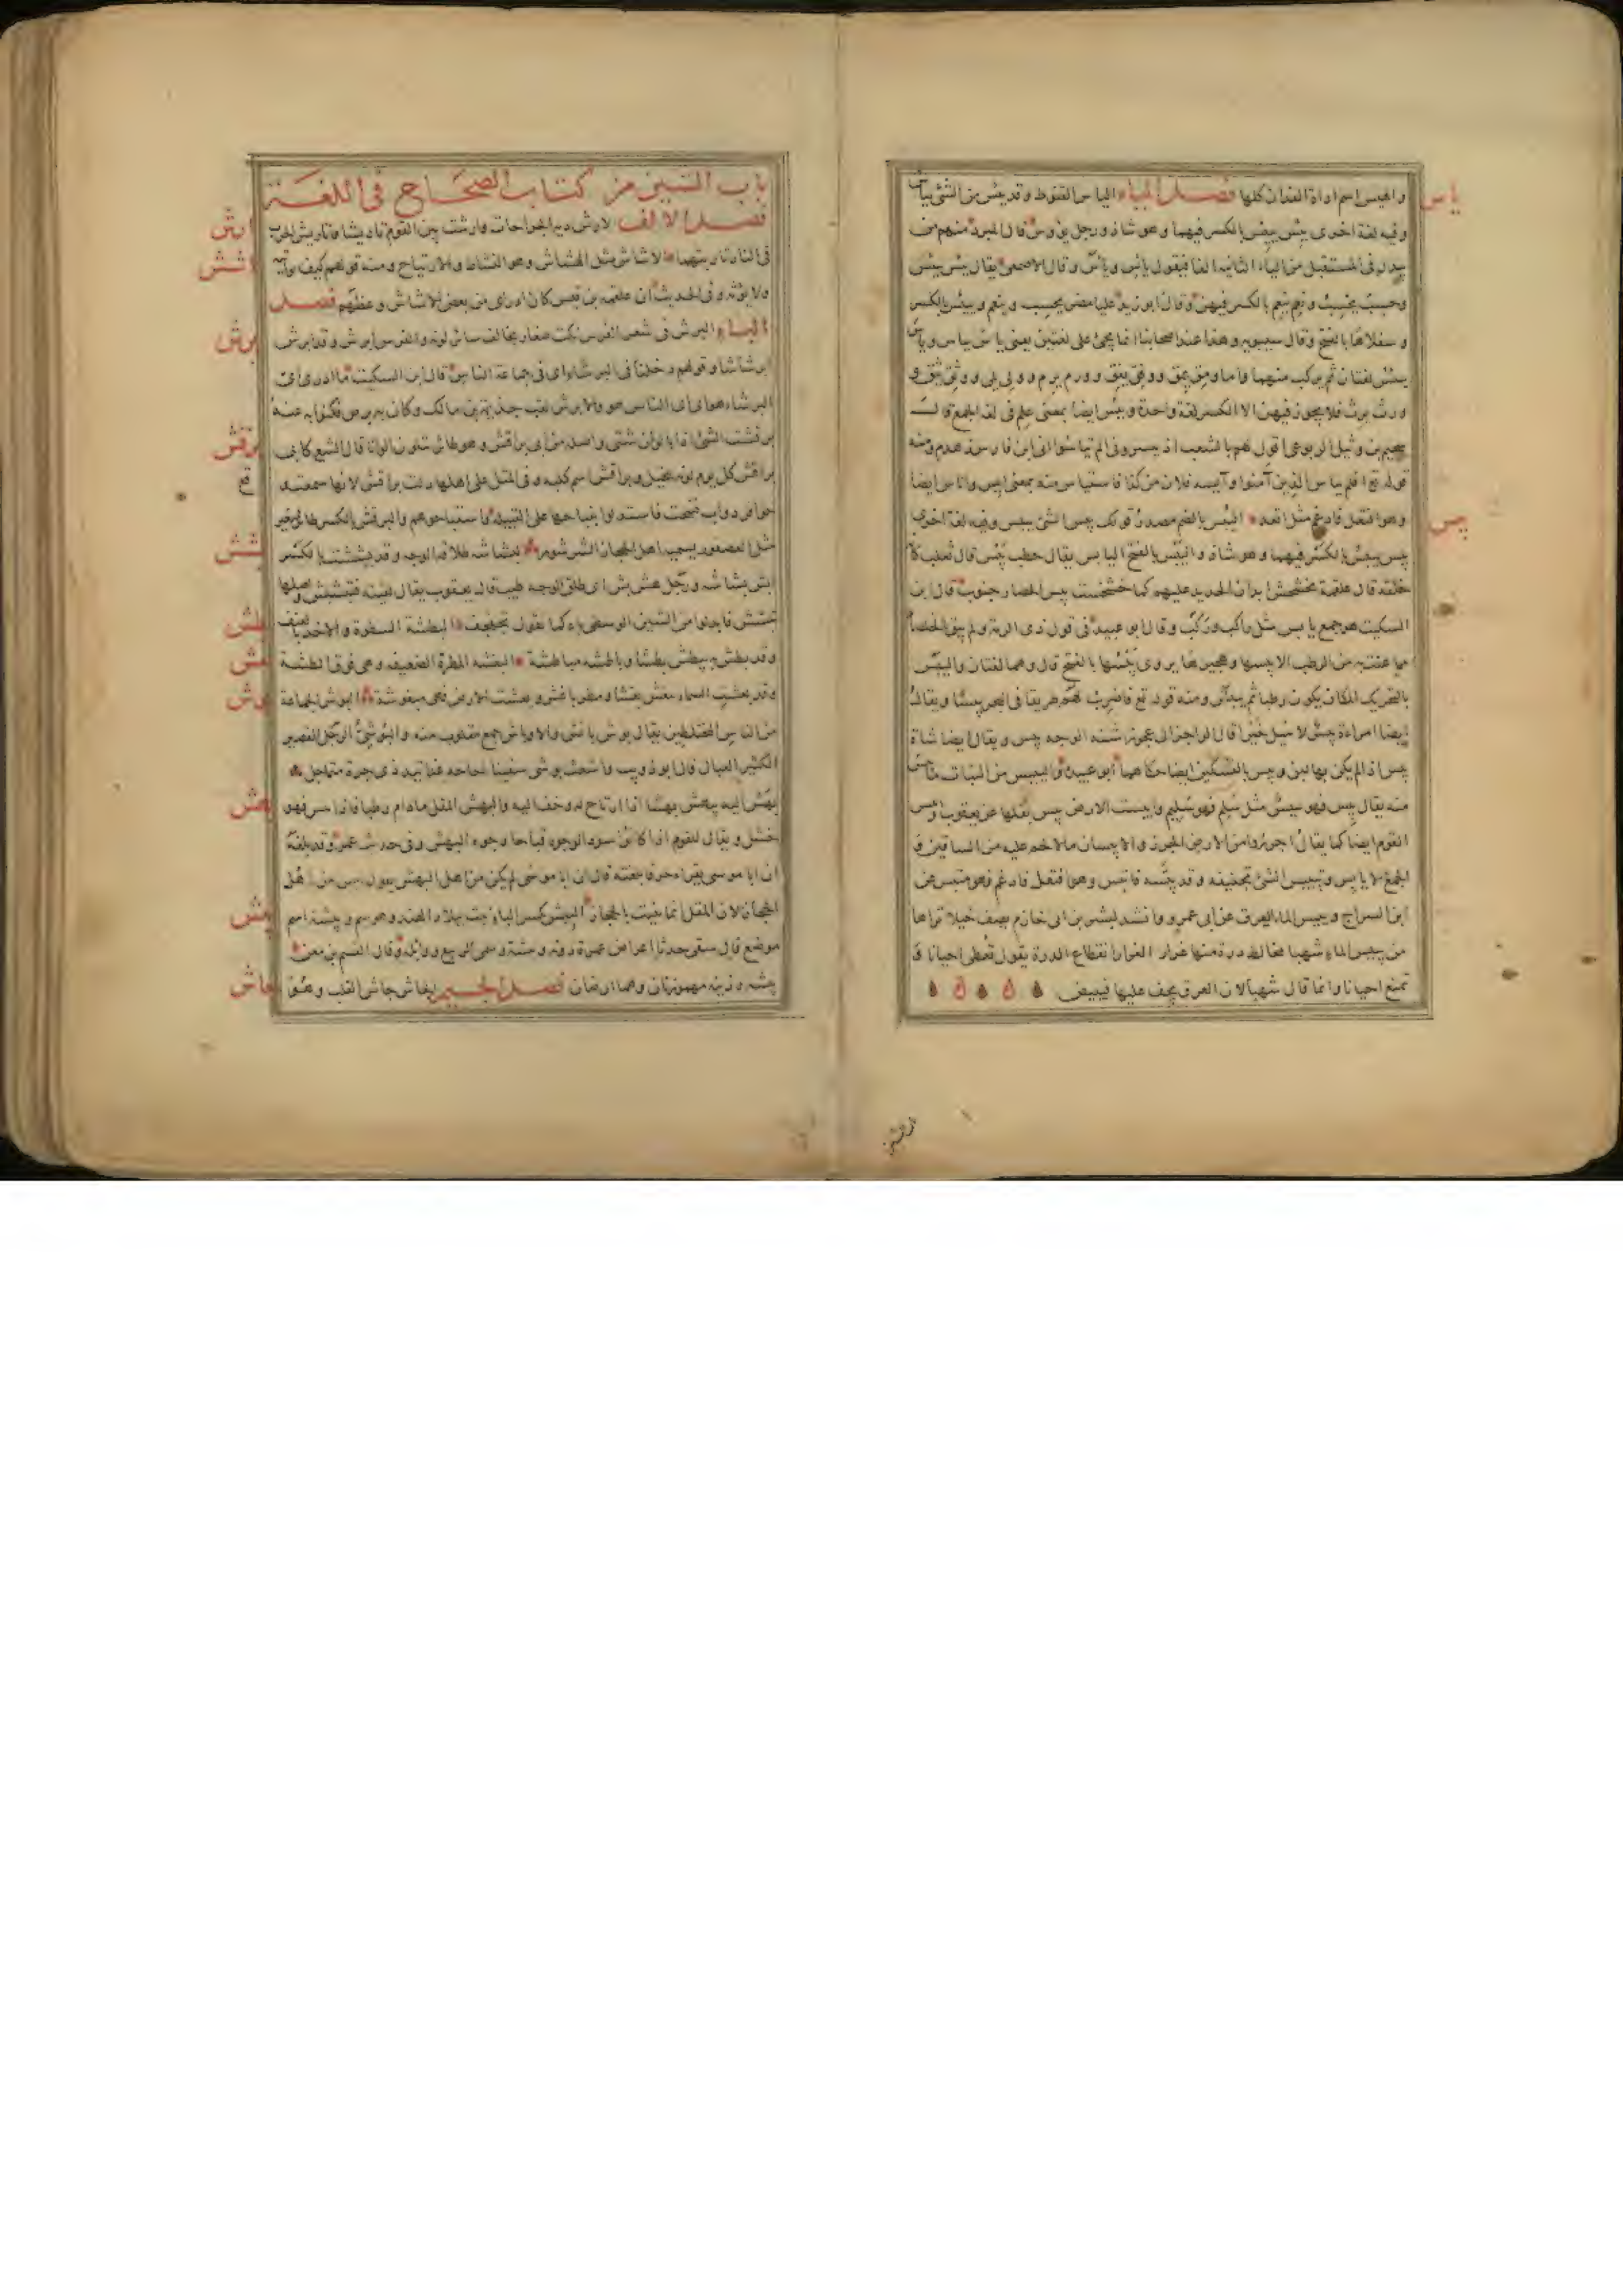 والهيس اسم اداة الفدان كلها فصل الياء الياس القنوط وقد يئس من الشئ ييأس
وفيه لغة اخرى يئس ييئس بالكسر فيهما وهو شاذ ورجل يؤوس قال المبرد منهم من
يبدل فى المستقبل من الياء الثانية الفا فيقول يائس وياس وقال الاصمعى يقال يئس ييئس
وحسب يحسب ونعم ينعم بالكسر فيهن وقال ابو زيد عليا مضر يحسب وينعم وييئس بالكسر
وسفلاها بالفتح وقال سيبويه وهذا عند اصحابنا انما يجئ على لغتين يعنى يئس ييأس وياس
ييئس لغتان ثم يركب منهما واما ومق يمق ووفق يفق وورم يرم وولى يلى ووثق يثق و
ورث يرث فلا يجوز فيهن الا الكسر لغة واحدة ويئس ايضا بمعنى علم فى لغة النخع قال
سحيم بن وثيل اليربوعى اقول لهم بالشعب اذ ييسروننى الم تيأسوا انى ابن فارس زهدم ومنه
قوله تع افلم ييأس الذين آمنوا وآيسه فلان من كذا فاستيأس منه بمعنى ايس واتاس ايضا
وهو افتعل فادغم مثل اتعد اليبس بالضم مصدر قولك يبس الشئ ييبس وفيه لغة اخرى
يبس ييبس بالكسر فيهما وهو شاذ واليبس بالفتح اليابس يقال حطب يبس قال ثعلب كأنه
خلقة قال علقمة تخشخش ابدان الحديد عليهم كما خشخشت يبس الحصاد جنوب قال ابن
السكيت هو جمع يابس مثل راكب وركب وقال ابو عبيد فى قول ذى الرمة ولم يبق الخلصاء
مما عنت به من الرطب الا يبسها وهجيرها يروى يبسها بالفتح قال وهما لغتان واليبس
بالتحريك المكان يكون رطبا ثم ييبس ومنه قوله تع فاضرب لهم طريقا فى البحر يبسا ويقال
ايضا امرأة يبس لا تنيل خيرا قال الراجز الى عجوز شنة الوجه يبس ويقال ايضا شاة
يبس اذا لم يكن بها لبن ويبس بالتسكين ايضا حكاهما ابو عبيدة واليبيس من النبات ما يبس
منه يقال يبس فهو يبيس مثل سلم فهو سليم وايبست الارض يبس بقلها عن يعقوب وايبس
القوم ايضا كما يقال اجرزوا من الارض الجرز والايبسان مالا لحم عليه من الساقين و
الجمع الايابس وتيبيس الشئ تجفيفه وقد يبسه فاتبس وهو افتعل فادغم فهو متبس عن
ابن السراج ويبيس الماء العرق عن ابى عمرو وانشد لبشر بن ابى خازم يصف خيلا تراها
من يبيس الماء شهبا مخالط درة منها غرار الغرار انقطاع الدرة يقول تعطى احيانا و
تمنع احيانا وانما قال شهبا لان العرق يجف عليها فيبيض
يأس
يبس
باب الشين من كتاب الصحاح فى اللغة
فصل الالف الارش دية الجراحات وارشت بين القوم تاريشا وتاريش الحرب
فى النار تاريثهما الاشاش مثل الهشاش وهو النشاط والارتياح ومنه قولهم كيف
ولا يؤثره وفى الحديث ان علقمة بن قيس كان اذا راى من بعض الاشاش وعظهم فصل
الباء البرش فى شعر الفرس نكت صغار يخالف سائر لونه والفرس ابرش وقد ابرش
ابرشاشا وقولهم دخلنا فى البرشاء اى فى جماعة الناس قال ابن السكيت ما ادرى اى
البرشاء هو اى اى الناس هو والابرش لقب جذيمة بن مالك وكان به برص فكنوا به عنه
برقشت الشئ اذا بالوان شتى واصله من ابى براقش وهو طائر يتلون الوانا قال الشاعر كابى
براقش كل يوم لونه يتخيل وبراقش اسم كلبة وفى المثل على اهلها دلت براقش لانها سمعت
حوافر دواب فنبحت فاستدلوا بنباحها على القبيلة فاستباحوهم والبرقش بالكسر طائر صغير
مثل العصفور يسميه اهل الحجاز الشرشور البشاشة طلاقة الوجه وقد بششت بالكسر
ابش بشاشة ورجل هش بش اى طلق الوجه طيب قال يعقوب يقال لقيته فتبشبش واصلها
تبشش فابدلوا من الشين الوسطى باء كما تقول تجفجف البطشة السطوة والاخذ بالعنف
وقد بطش به يبطش بطشا وباطشه مباطشة البغشة المطرة الضعيفة وهى فوق الطشة
وقد بغشت السماء تبغش بغشا ومطر باغش وبغشت الارض فهى مبغوشة البوش الجماعة
من الناس المختلطين يقال بوش بائش والاوباش جمع مقلوب منه والبوشى الرجل الفقير
الكثير العيال قال ابو ذؤيب واشعث بوشى شفينا احاحه غداتئذ ذى جردة متماحل
بهش اليه يبهش بهشا اذا ارتاح له وخف اليه والبهش المقل مادام رطبا فاذا يبس فهو
خشل ويقال للقوم اذا كانوا سود الوجوه قباحا وجوه البهش وفى حديث عمر وقد بلغه
ان ابا موسى يقرأ حرفا بلغته قال ان ابا موسى لم يكن من اهل البهش يقول ليس من اهل
الحجاز لان المقل انما ينبت بالحجاز البيش بكسر الباء نبت ببلاد الهند وهو سم وبيشة اسم
موضع قال سقى جدثا اعراض غمرة دونه وبيشة وسمى الربيع ووابله وقال القسم بن معن
بيشة وزئنة مهموزتان وهما ارضان فصل الجيم الجاش جاش القلب وهو
ارش
اشش
برش
برقش
تع
بشش
بطش
بغش
بوش
بهش
بيش
جاش